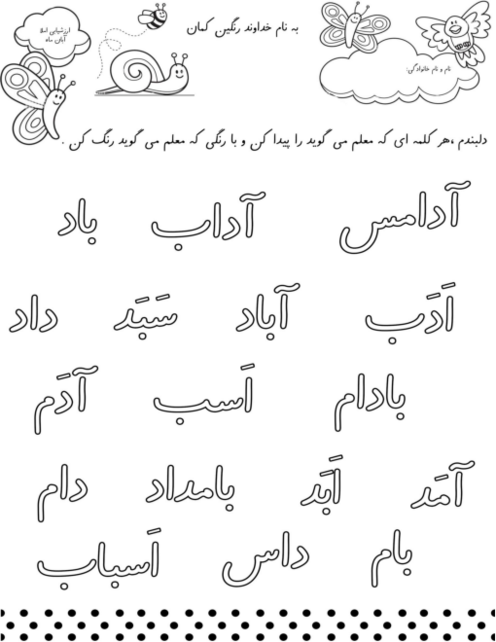 به نام خداوند رنگین کمان
ارزشیابی املا
آبان ماه
نام و نام خانوادگی:
دلبندم ،هر کلمه ای که معلم می گوید را پیدا کن و با رنگی که معلم می گوید رنگ کن .
آدامس آداب باد
اَدَب آباد سَبَد داد
بادام اَسب آدَم
آمَد اَبَد بامداد دام
بام داس اَسباب